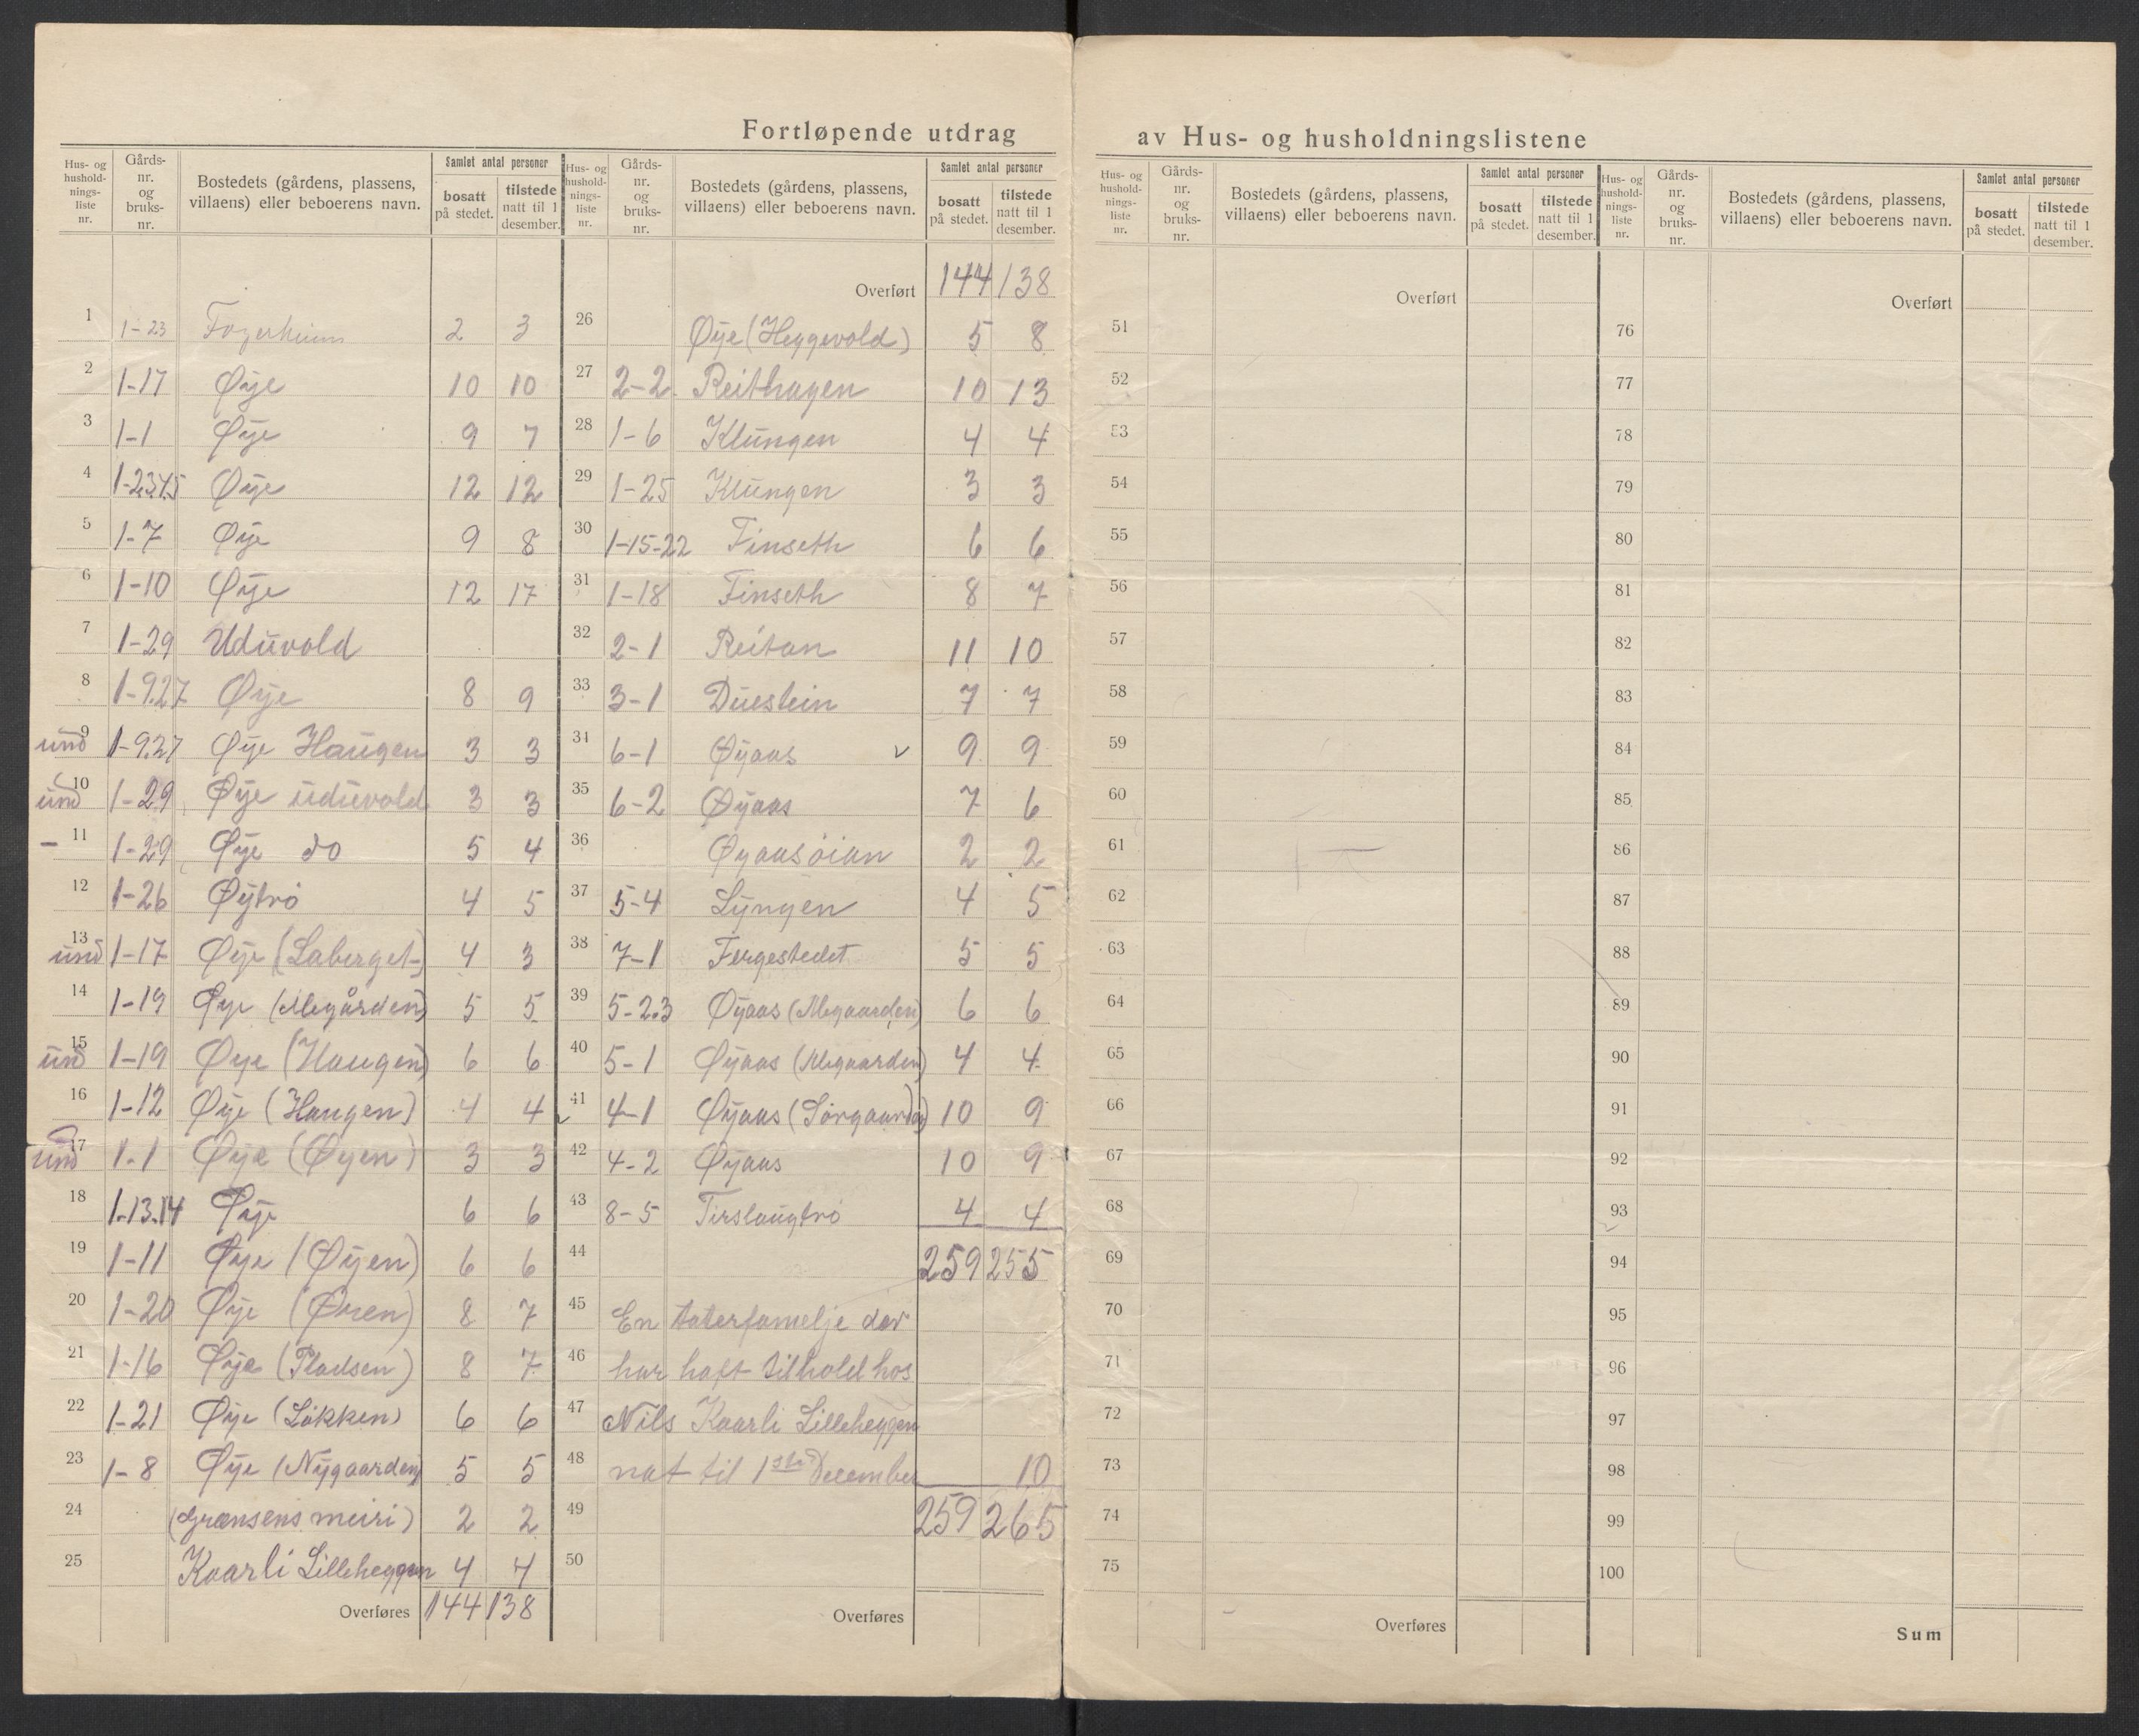 Fortløpende utdrag av Hus- og husholdningslistene
Hus- og hushold- nings- liste nr. Gårds- nr. og bruks- nr. Bostedets (gårdens, plassens, villaens) eller beboerens navn. Samlet antal personer bosatt på stedet. tilstede natt til 1 desember.
1 1-23 Fagerheim 2 3
2 1-17 Øye 10 10
3 1-1 Øye 9 7
4 1-2345 Øye 12 12
5 1-7 Øye 9 8
6 1-10 Øye 12 17
7 1-29 Uduvold
8 1-9.27 Øye 8 9
und 9 1-9.27 Øye Haugen 3 3
und 10 1-29 Øye uduvold 3 3
- 11 1-29 Øye do 5 4
12 1-26 Øytrø 4 5
und 13 1-17 Øye (Laberget) 4 3
14 1-19 Øye (Megården) 5 5
und 15 1-19 Øye (Haugen) 6 6
16 1-12 Øye (Haugen) 4 4
und 17 1.1 Øye (Øyen) 3 3
18 1.13.14 Øye 6 6
19 1-11 Øye (Øyen) 6 6
20 1-20 Øye (Øren) 8 7
21 1-16 Øye (Pladsen) 8 7
22 1-21 Øye (Løkken) 6 6
23 1-8 Øye (Nygaarden) 5 5
24 (Grænsens meiri) 2 2
25 Kaarli Lilleheggen 4 4
Overføres 144 138
Hus- og hushold- nings- liste nr. Gårds- nr. og bruks- nr. Bostedets (gårdens, plassens, villaens) eller beboerens navn. Samlet antal personer bosatt på stedet. tilstede natt til 1 desember.
Overført 144 138
26 Øye (Heggevold) 5 8
27 2-2 Reithagen 10 13
28 1-6 Klungen 4 4
29 1-25 Klungen 3 3
30 1-15-22 Finseth 6 6
31 1-18 Finseth 8 7
32 2-1 Reitan 11 10
33 3-1 Duestein 7 7
34 6-1 Øyaas v 9 9
35 6-2 Øyaas 7 6
36 Øyaasøian 2 2
37 5-4 Lyngen 4 5
38 7-1 Fergestedet 5 5
39 5-2.3 Øyaas (Megaarden) 6 6
40 5-1 Øyaas (Megaarden) 4 4
v 41 4-1 Øyaas (Sørgaarden) 10 9
42 4-2 Øyaas 10 9
43 8-5 4 4
44 259 255
45 En taterfamelje der
46 har haft tilhold hos
47 Nils Kaarli Lilleheggen
48 nat til 1ste December 10
49 259 265
50
Overføres
Hus- og hushold- nings- liste nr. Gårds- nr. og bruks- nr. Bostedets (gårdens, plassens, villaens) eller beboerens navn. Samlet antal personer bosatt på stedet. tilstede natt til 1 desember.
Overført
51
52
53
54
55
56
57
58
59
60
61
62
63
64
65
66
67
68
69
70
71
72
73
74
75
Overføres
Hus- og hushold- nings- liste nr. Gårds- nr. og bruks- nr. Bostedets (gårdens, plassens, villaens) eller beboerens navn. Samlet antal personer bosatt på stedet. tilstede natt til 1 desember.
Overført
76
77
78
79
80
81
82
83
84
85
86
87
88
89
90
91
92
93
94
95
96
97
98
99
100
Sum